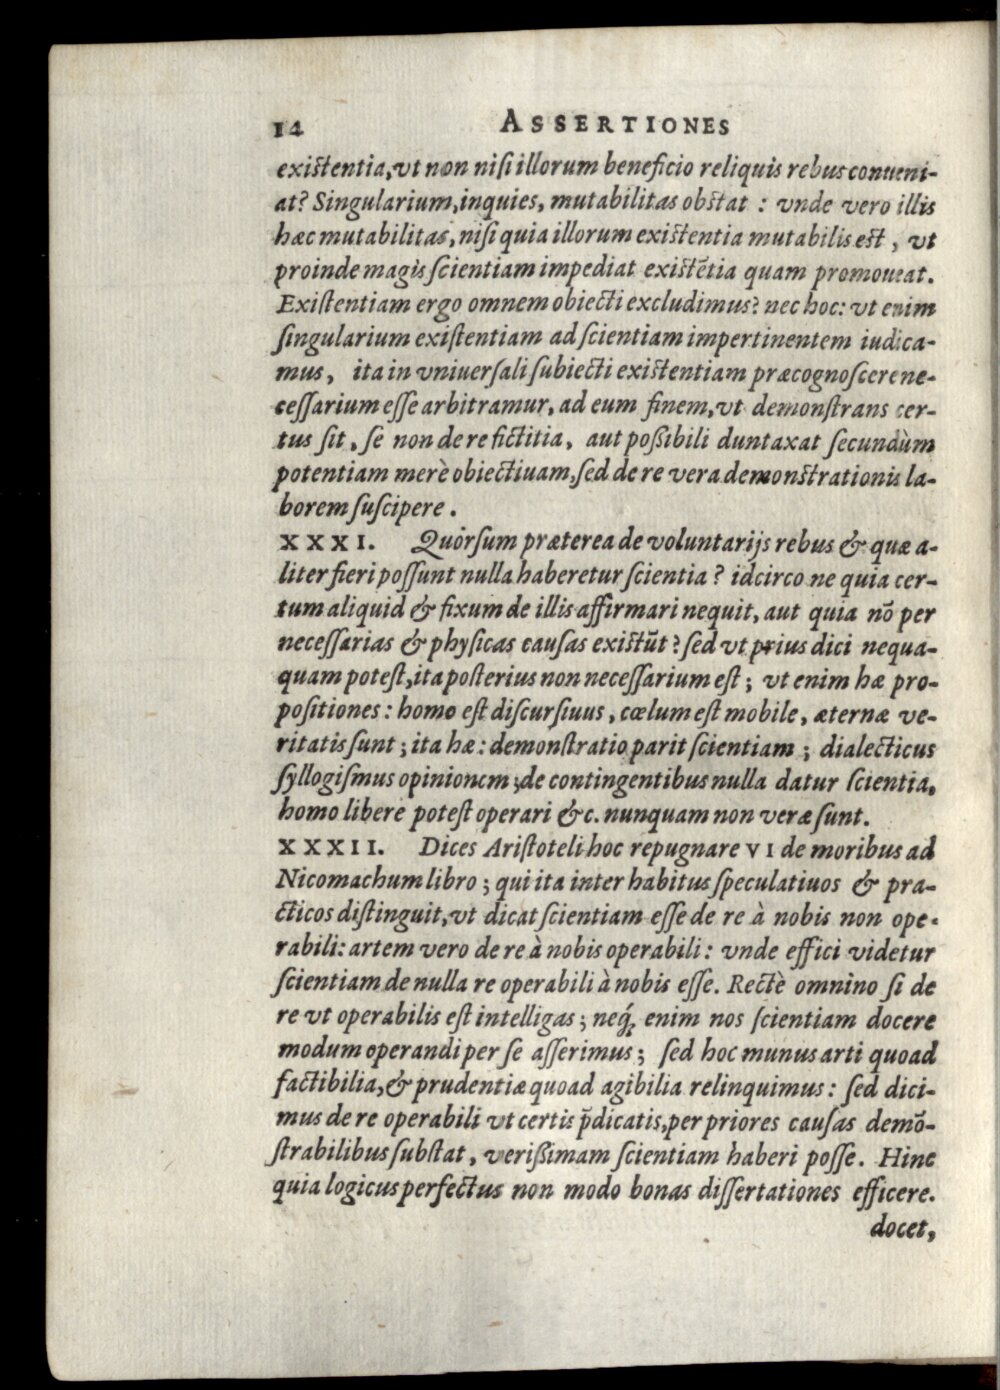 14 ASSERTIONES
exiſtentia, vt non niſi illorum beneficio reliquis rebus conueni-
at? Singularium, inquies, mutabilitas obſtat : vnde vero illis
hæc mutabilitas, niſi quia illorum exiſtentia mutabilis eſt, vt
proinde magis ſcientiam impediat exiſtẽtia quam promoueat.
Exiſtentiam ergo omnem obiecti excludimus? nec hoc: vt enim
ſingularium exiſtentiam ad ſcientiam impertinentem iudica-
mus, ita in vniuerſali ſubiecti exiſtentiam præcognoſcere ne-
ceſſarium eſſe arbitramur, ad eum finem, vt demonſtrans cer-
tus ſit, ſe non de re fictitia, aut poßibili duntaxat ſecundùm
potentiam merè obiectiuam, ſed de re vera demonſtrationis la-
borem ſuſcipere.
XXXI. Quórſum præterea de voluntarijs rebus & quæ a-
liter fieri poſſunt nulla haberetur ſcientia? idcirco ne quia cer-
tum aliquid & fixum de illis affirmari nequit, aut quia nõ per
neceſſarias & phyſicas cauſas exiſtũt? ſed vt prius dici nequa-
quam poteſt, ita poſterius non neceſſarium eſt; vt enim hæ pro-
poſitiones: homo eſt diſcurſiuus, cœlum eſt mobile, æternæ ve-
ritatis ſunt; ita hæ: demonſtratio parit ſcientiam; dialecticus
ſyllogiſmus opinionem; de contingentibus nulla datur ſcientia,
homo libere poteſt operari &c. nunquam non veræ ſunt.
XXXII. Dices Ariſtoteli hoc repugnare VI de moribus ad
Nicomachum libro; qui ita inter habitus ſpeculatiuos & pra-
cticos diſtinguit, vt dicat ſcientiam eſſe de re à nobis non ope-
rabili: artem vero de re à nobis operabili: vnde effici videtur
ſcientiam de nulla re operabili à nobis eſſe. Rectè omnino ſi de
re vt operabilis eſt intelligas; neq́; enim nos ſcientiam docere
modum operandi per ſe aſſerimus; ſed hoc munus arti quoad
factibilia, & prudentiæ quoad agibilia relinquimus: ſed dici-
mus de re operabili vt certis p̃dicatis, per priores cauſas demõ-
ſtrabilibus ſubſtat, verißimam ſcientiam haberi poſſe. Hinc
quia logicus perfectus non modo bonas diſſertationes efficere.
docet,